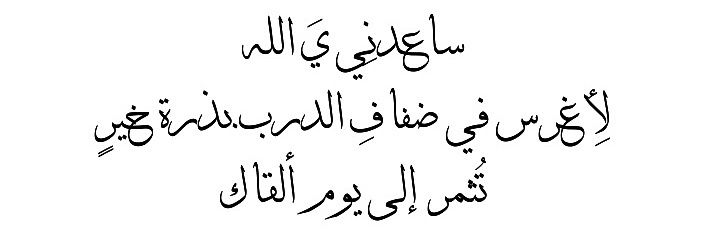 ساعدنِي يَ الله
لِأغرس في ضفافِ الدرب بذرة خيرٍ
تُثمر إلى يوم ألقاك